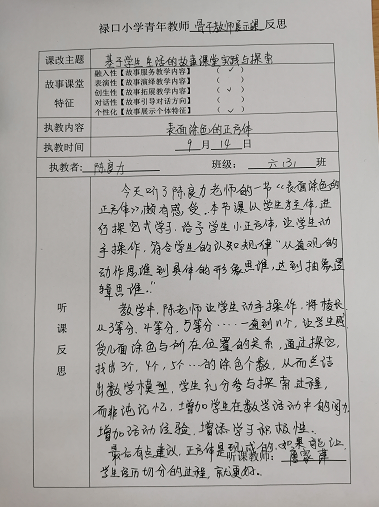 禄口小学青年教师 骨干教师展示课 反思
课改主题 基于学生生活的故事课堂实践与探索
故事课堂特征
融入性【故事服务教学内容】 ( ✓ )
表演性【故事演绎教学内容】 ( )
创生性【故事拓展教学内容】 ( ✓ )
对话性【故事引导对话方向】 ( )
个性化【故事展示个体特征】 ( ✓ )
执教内容 表面涂色的正方体
执教时间 9月14日
执教者: 陈良力 班级: 六(3) 班
听课反思
今天听了陈良力老师的一节《表面涂色的
正方体》颇有感受。本节课以学生为主体,进
行探究式学习,给予学生小正方体,让学生动
手操作,符合学生的认知规律“从直观的
动作思维到具体的形象思维,达到抽象逻
辑思维。”
教学中,陈老师让学生动手操作,将棱长
从3等分,4等分,5等分……一直到n个,让学生感
受几面涂色与所在位置的关系,通过探究,
找出3个,4个,5个…的涂色个数,从而总结
出数学模型,学生充分参与探索过程,
而非死记忆,增加学生在数学活动中的
增加活动经验,增添学习积极性。
最后有点建议,正方体是现成的,如果能让
学生经历切分的过程,就更好。
听课教师: